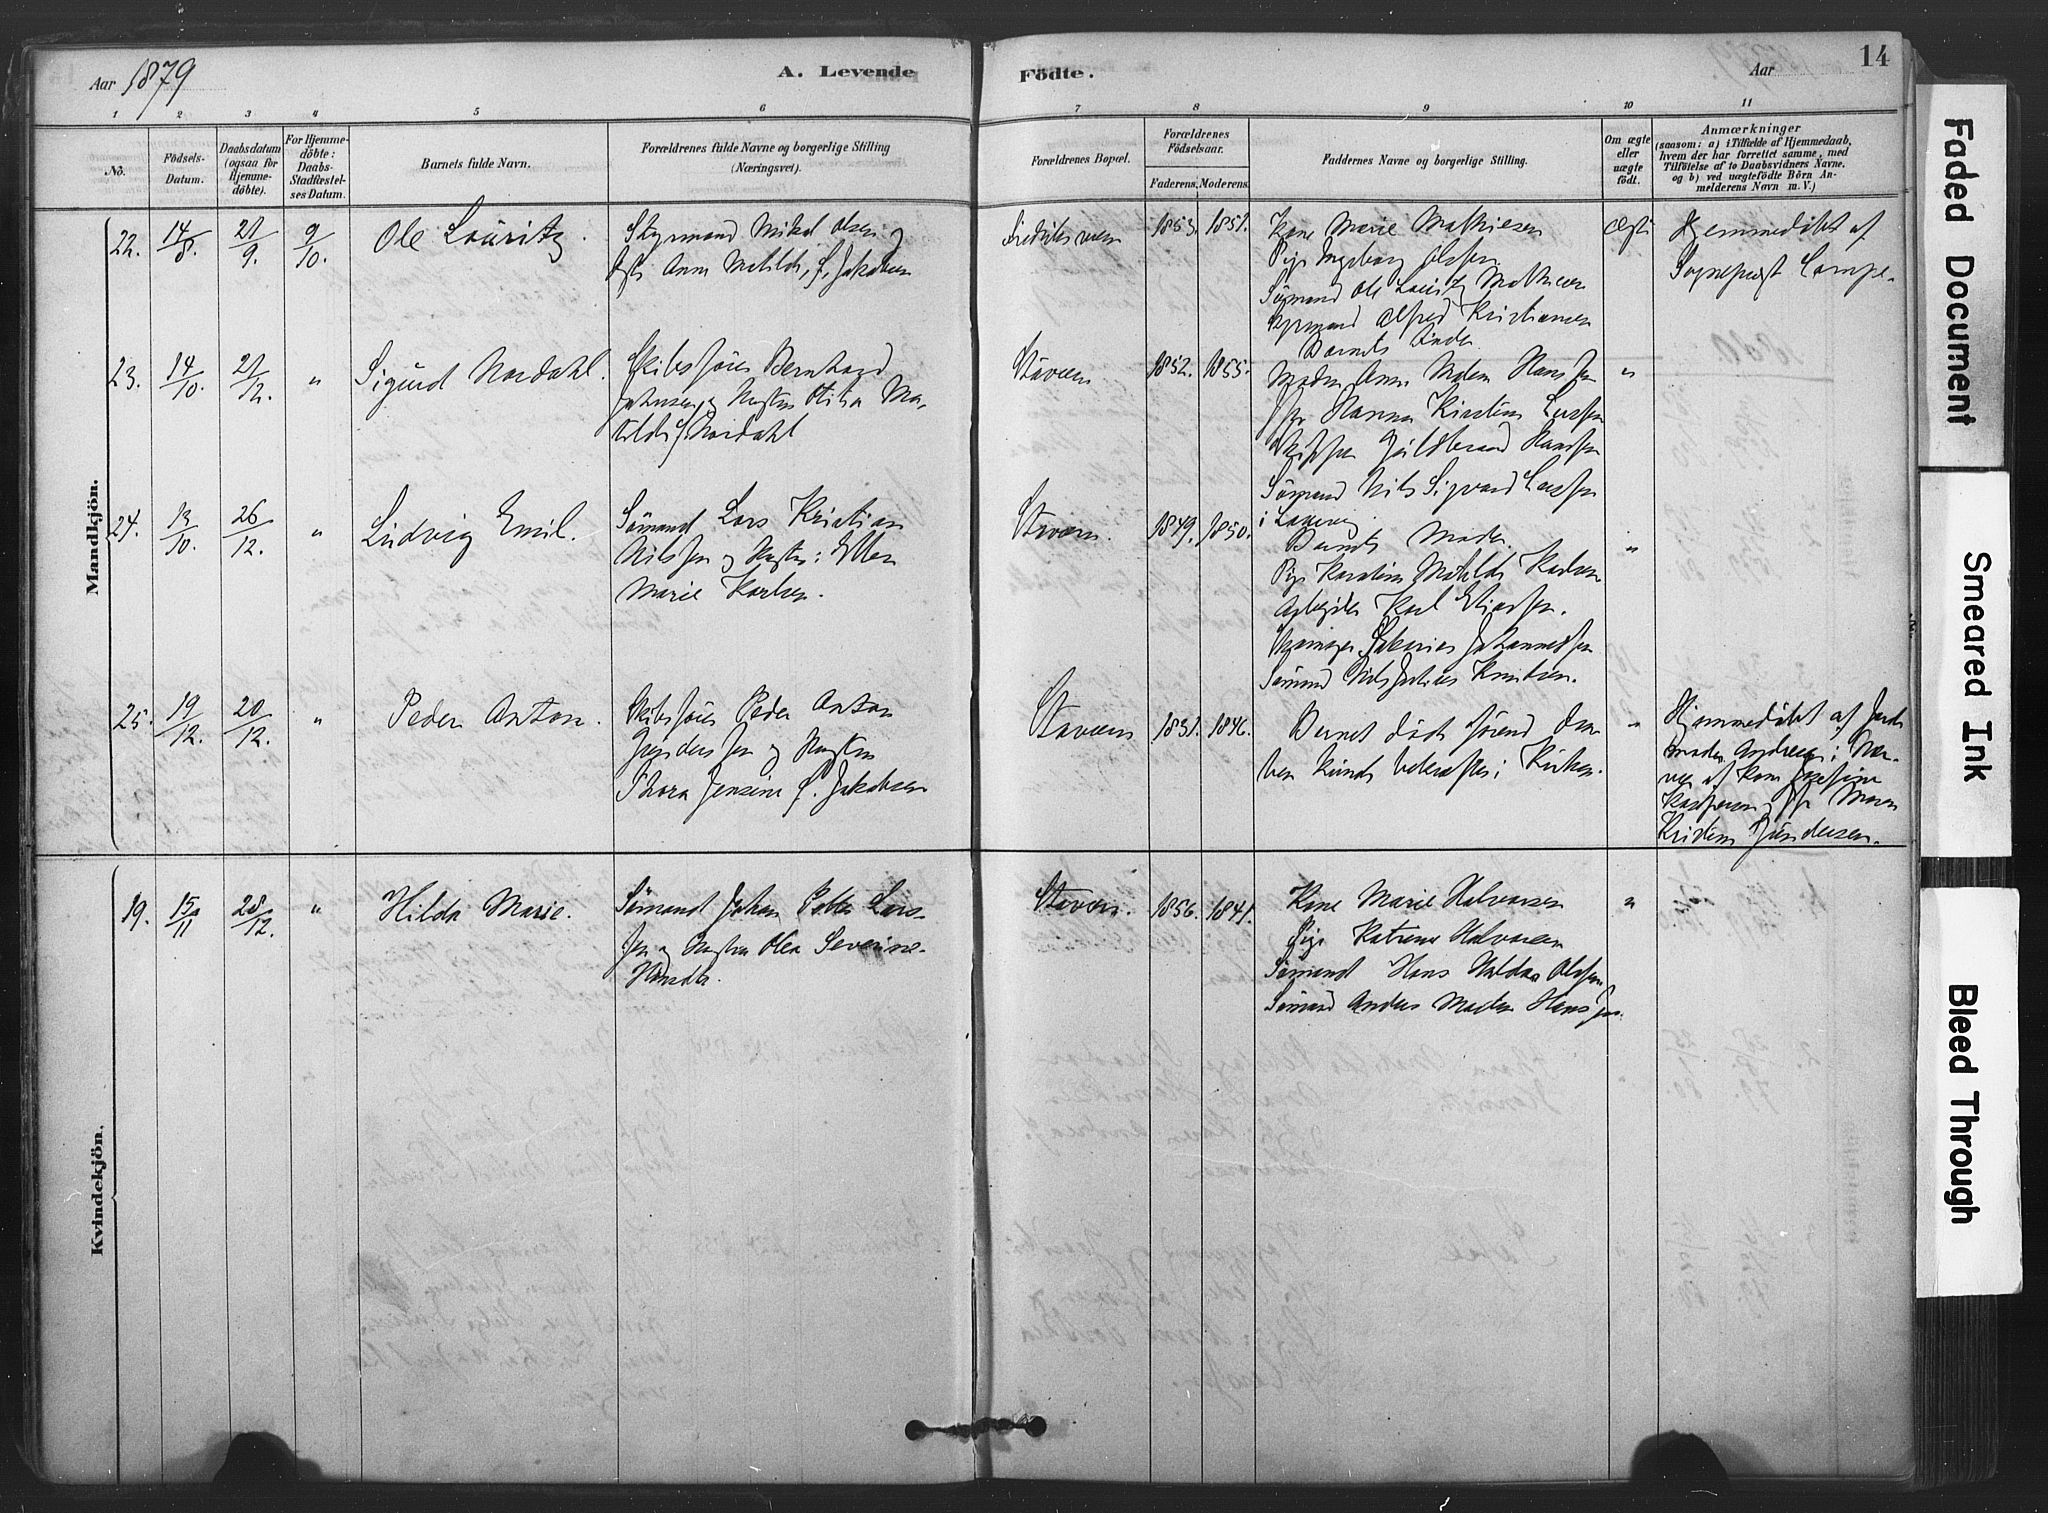 Aar 1879
A. Levende
Födte.
Aar
14
1 2 3 4 5 6 7 8 9 10 11
No.
Födsels-
Datum.
Daabsdatum
(ogsaa for
Hjemme-
döbte).
For Hjemme-
döbte:
Daabs-
Stadfæstel-
ses Datum.
Barnets fulde Navn.
Forældrenes fulde Navne og borgerlige Stilling
(Næringsvei).
Forældrenes Bopæl.
Forældrenes
Födselsaar.
Faderens. Moderens.
Faddernes Navne og borgerlige Stilling.
Om ægte
eller
uægte
födt.
Anmærkninger
(saasom: a) i Tilfælde af Hjemmedaab,
hvem der har forrettet samme, med
Tilföielse af to Daabsvidners Navne.
og b) ved uægtefödte Börn An-
melderens Navn m. V.)
Mandkjön.
22. 14/8. 21/9. 9/10. Ole Lauritz.
Styrmand Mikal Olsen og
Anna Matilde, f. Jakobsen
Fredriksværn
1853. 1851.
Kone Marie Mathiesen
Pige Ingeborg Olsen
Sömand Ole Lauritz Mathisen
Styrmand Alfred Kristiansen
Barnets Fader
ægte
Hjemmedöbt af
Sogneprest Lampe.
23. 14/10. 21/12. " Sigurd Nordahl.
Skibsförer Bernhard
Johnsen og Hustru Otilia Ma-
tilde f. Nordahl
Staværn
1852. 1855.
Madm Anne Malen Hansen
Hanna Kirstine Larssen
Skipper Guldbrand Hanssen
Sömand Nils Sigvard Larssen
i Laurvig
"
24. 13/10. 26/12. " Ludvig Emil.
Sömand Lars Kristian
Nilssen og Hustru: Ellen
Marie Karlsen.
Staværn.
1849. 1850.
Barnets Moder.
Pige Karoline Matilde Karlsen
Arbeider Karl Eliassen.
Sakarias Johannessen
Sömand Nils Julius Knudsen.
"
25. 19/12. 20/12. " Peder Anton.
Skibsförer Peder Anton
Gundersen og Hustru
Thora Jensine f. Jakobsen
Staværn
1831. 1846.
Barnet döde förend Daa-
ben kunde bekræftes i Kirken.
"
Hjemmedöbt af Jord-
moder Andresen i Nær-
vær af Kone Josefine
Kaspersen og Maren
Kristine Gundersen.
Kvindekjön.
19. 15/11 28/12. " Hilda Marie.
Sömand Johan Petter Lars-
sen og Hustru Olea Severine
Staværn.
1856. 1841.
Kone Marie Halvorsen
Pige Katrine Halvorsen
Sömand Hans Haldor Olssen
Sömand Anders Martin Hanssen.
"
Faded Document
Smeared Ink
Bleed Through